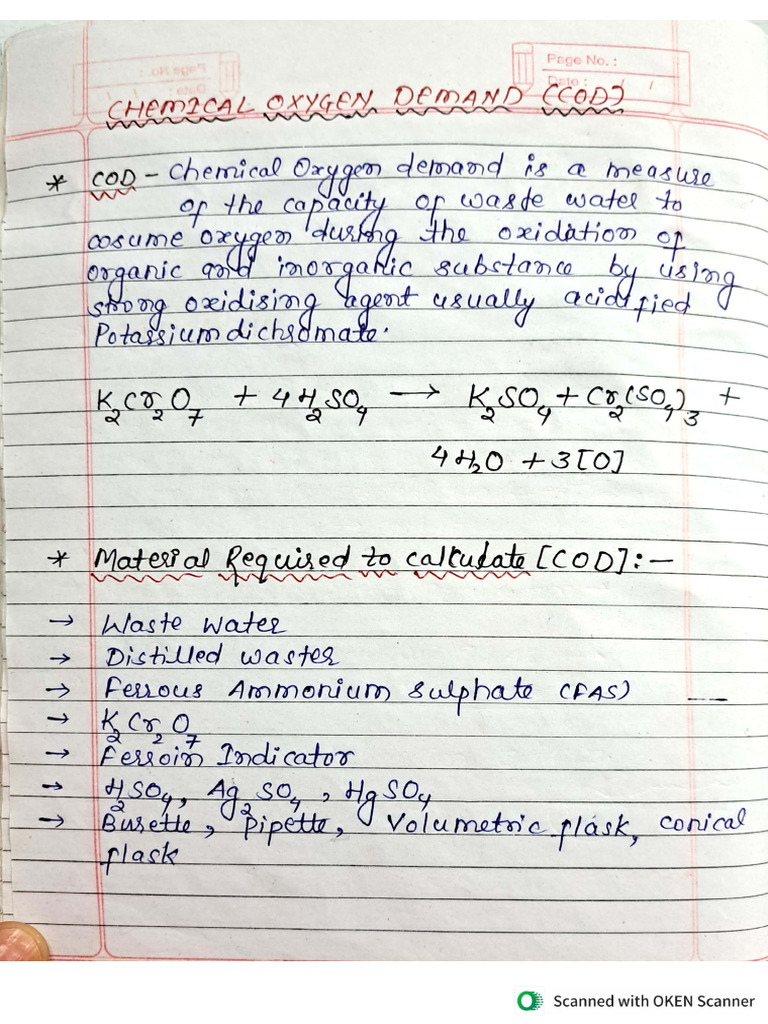 Page No. :
Date :
CHEMICAL OXYGEN DEMAND (COD)
* COD - Chemical Oxygen demand is a measure
of the capacity of waste water to
cosume oxygen during the oxidation of
organic and inorganic substance by using
strong oxidising agent usually acidified
Potassium dichromate.
K₂Cr₂O₇ + 4H₂SO₄ → K₂SO₄ + Cr₂(SO₄)₃ +
4H₂O + 3[O]
* Material Required to calculate [COD] :-
→ Waste water
→ Distilled waster
→ Ferrous Ammonium Sulphate (FAS)
→ K₂Cr₂O₇
→ Ferroin Indicator
→ H₂SO₄, Ag₂SO₄, HgSO₄
→ Burette, Pipette, Volumetric flask, conical
flask
Scanned with OKEN Scanner